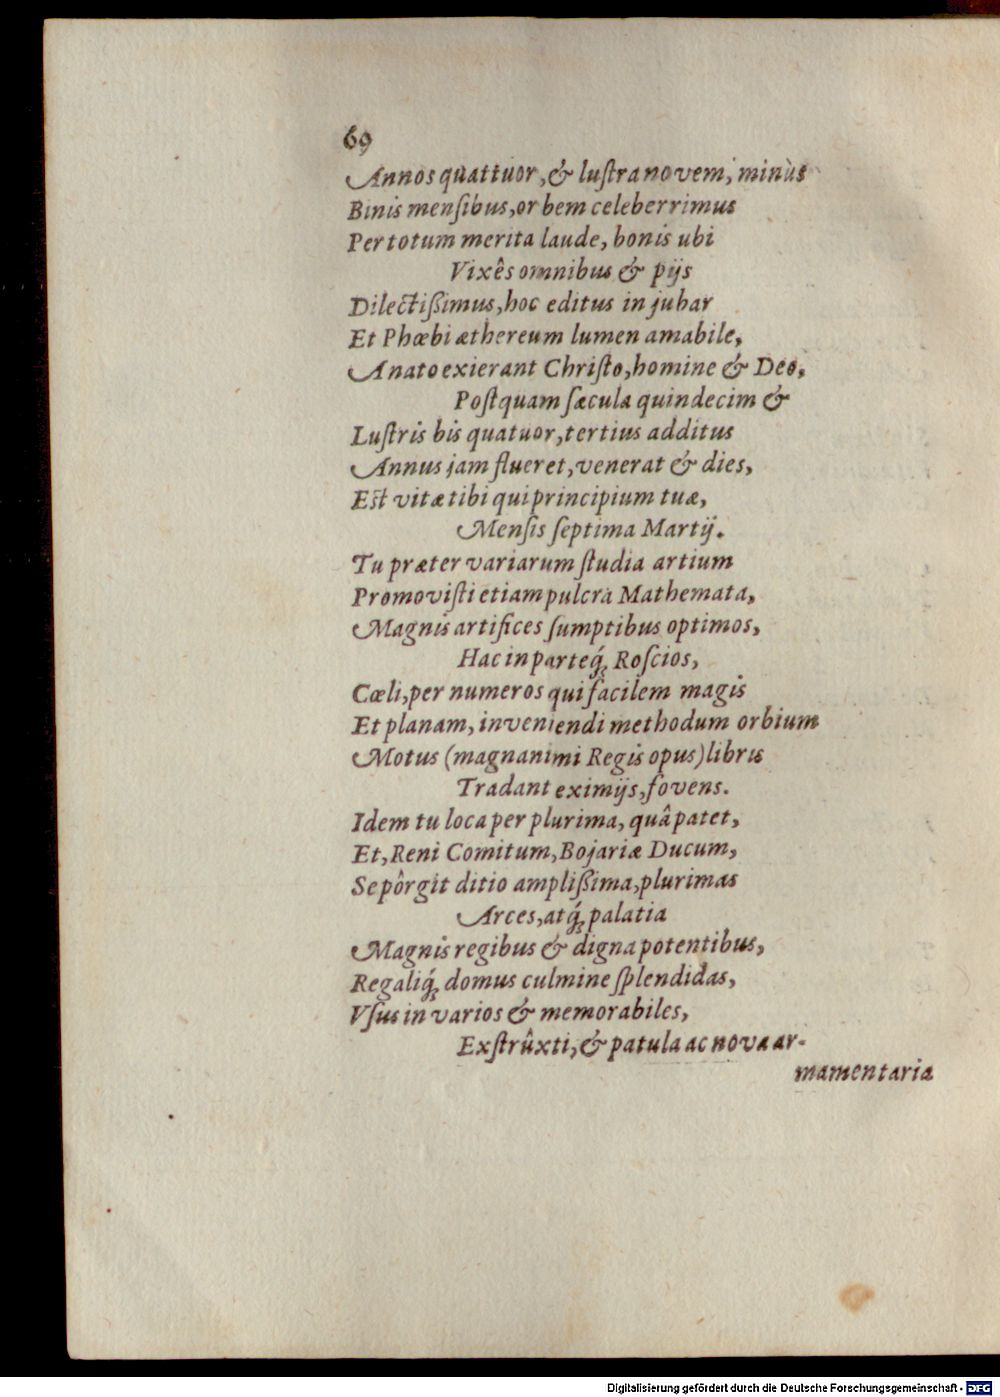 69
Annos quattuor, & luſtra novem, minùs
Binis menſibus, orbem celeberrimus
Per totum merita laude, bonis ubi
Vixês omnibus & pijs
Dilectißimus, hoc editus in jubar
Et Phœbi æthereum lumen amabile,
A nato exierant Chriſto, homine & Deo,
Poſtquam ſæcula quindecim &
Luſtris bis quatuor, tertius additus
Annus jam flueret, venerat & dies,
Est vitæ tibi qui principium tuæ,
Menſis ſeptima Martij.
Tu præter variarum ſtudia artium
Promoviſti etiam pulcra Mathemata,
Magnis artifices ſumptibus optimos,
Hac in parteq́; Roſcios,
Cœli, per numeros qui facilem magis
Et planam, inveniendi methodum orbium
Motus (magnanimi Regis opus) libris
Tradant eximijs, fovens.
Idem tu loca per plurima, quâ patet,
Et, Reni Comitum, Bojariæ Ducum,
Se pôrgit ditio amplißima, plurimas
Arces, atq́; palatia
Magnis regibus & digna potentibus,
Regaliq́; domus culmine ſplendidas,
Vſus in varios & memorabiles,
Exſtrûxti, & patula ac nova ar-
mamentaria
Digitalisierung gefördert durch die Deutsche Forschungsgemeinschaft - DFG